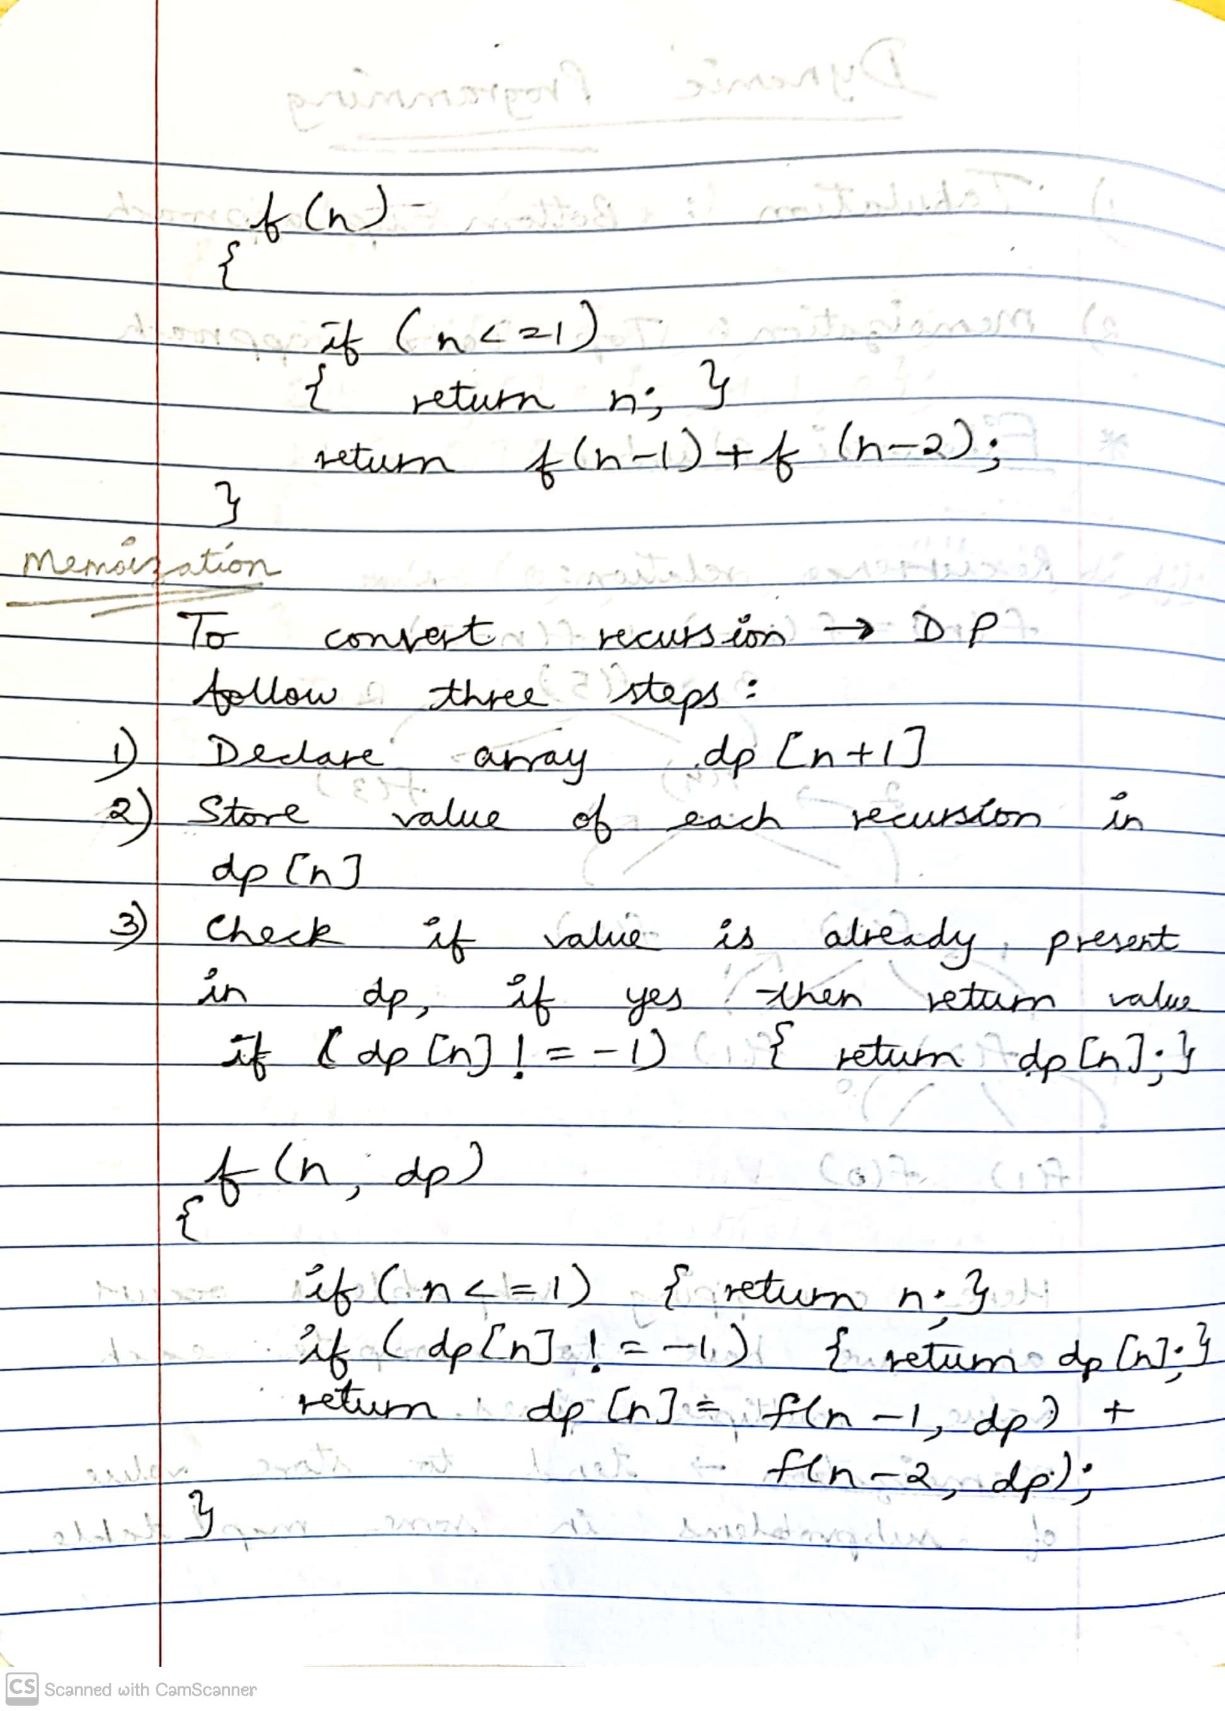 f(n)
{
if (n<=1)
{ return n; }
return f(n-1)+f (n-2);
}
Memoization
To convert recursion → DP
follow three steps:
1) Declare array dp [n+1]
2) Store value of each recursion in
dp [n]
3) Check if value is already present
in dp, if yes then return value
if (dp [n] != -1) { return dp [n]; }
f (n, dp)
{
if (n<=1) { return n; }
if (dp [n] != -1) { return dp [n]; }
return dp [n] = f(n-1, dp) +
f(n-2, dp);
}
CS Scanned with CamScanner